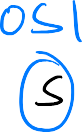 OSI
S